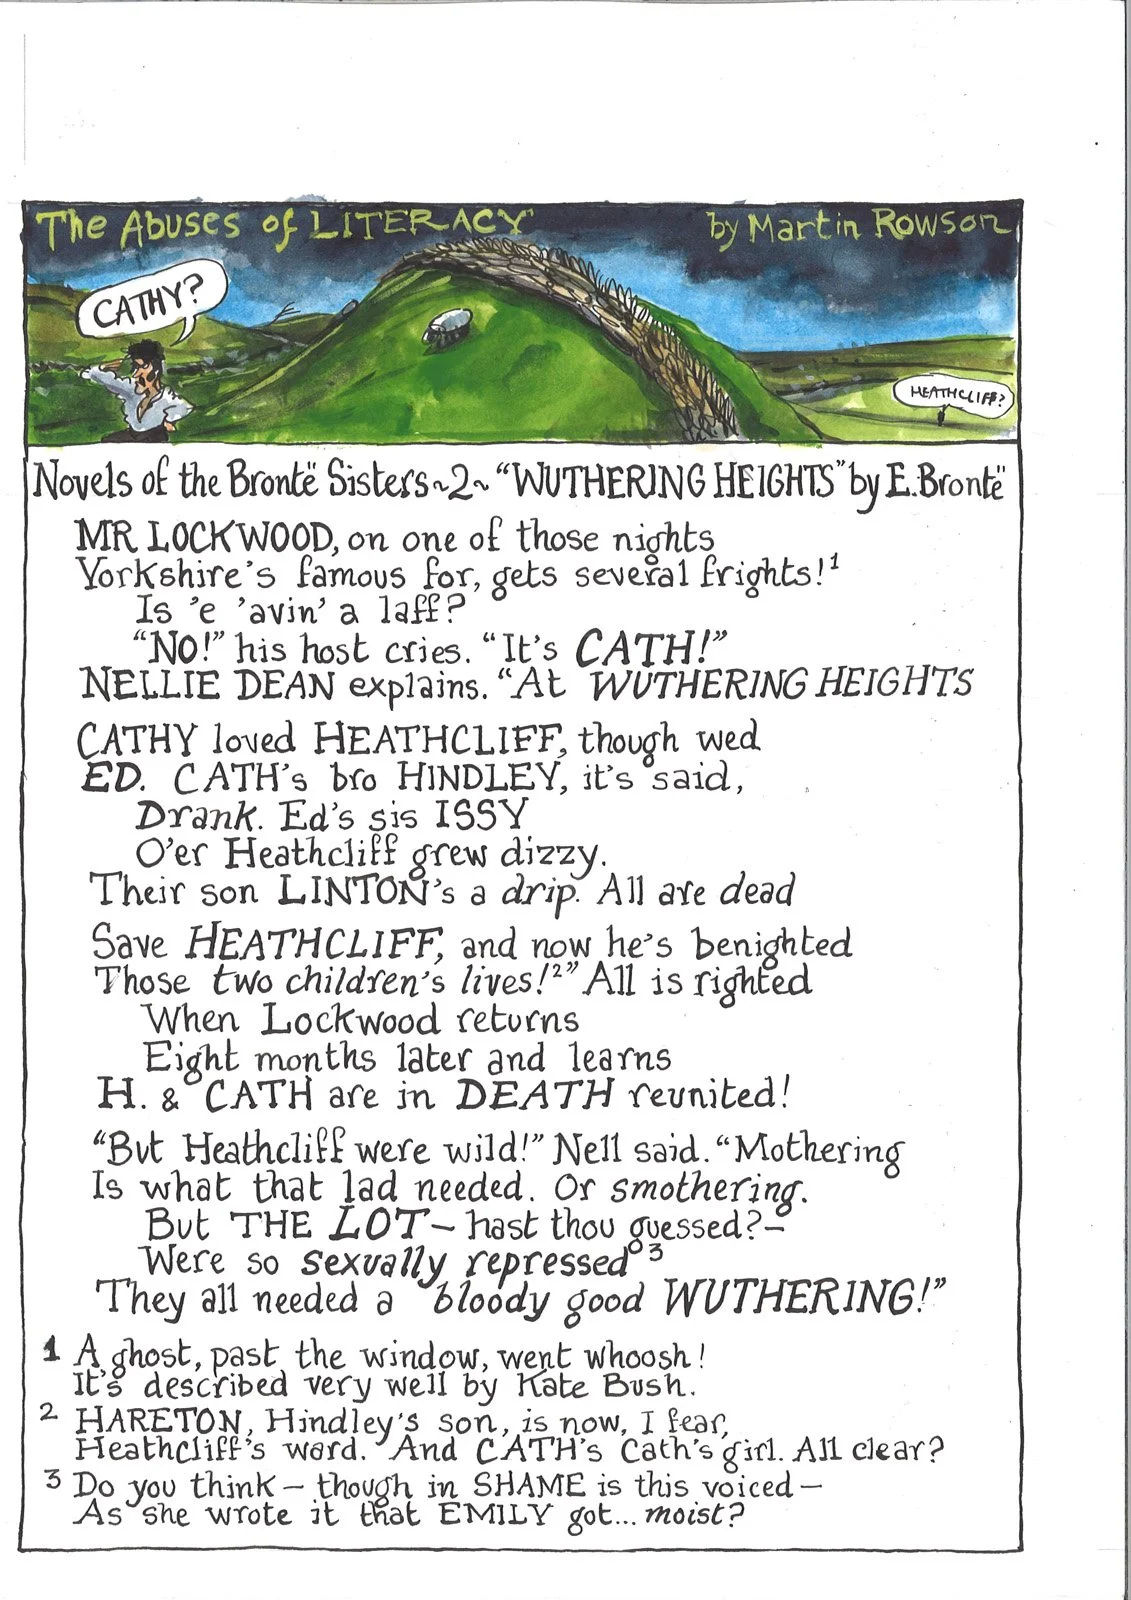 The Abuses of LITERACY by Martin Rowson
CATHY?
HEATHCLIFF?
Novels of the Brontë Sisters ~2~ "WUTHERING HEIGHTS" by E. Brontë
MR LOCKWOOD, on one of those nights
Yorkshire's famous for, gets several frights!¹
Is 'e 'avin' a laff?
"NO!" his host cries. "It's CATH!"
NELLIE DEAN explains. "At WUTHERING HEIGHTS
CATHY loved HEATHCLIFF, though wed
ED. CATH's bro HINDLEY, it's said,
Drank. Ed's sis ISSY
O'er Heathcliff grew dizzy.
Their son LINTON's a drip. All are dead
Save HEATHCLIFF, and now he's benighted
Those two children's lives!²" All is righted
When Lockwood returns
Eight months later and learns
H. & CATH are in DEATH reunited!
"But Heathcliff were wild!" Nell said. "Mothering
Is what that lad needed. Or smothering.
But THE LOT – hast thou guessed? –
Were so sexually repressed³
They all needed a bloody good WUTHERING!"
1 A ghost, past the window, went whoosh!
It's described very well by Kate Bush.
2 HARETON, Hindley's son, is now, I fear,
Heathcliff's ward. And CATH's Cath's girl. All clear?
3 Do you think – though in SHAME is this voiced –
As she wrote it that EMILY got... moist?